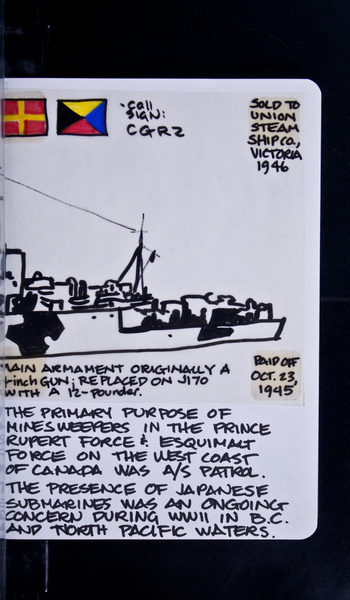 ·call
SIGN:
CGRZ
SOLD TO
UNION
STEAM
SHIP CO.,
VICTORIA
1946
MAIN ARMAMENT ORIGINALLY A
-inch GUN; REPLACED ON J170
WITH A 12-pounder.
PAID OFF
OCT. 23,
1945
THE PRIMARY PURPOSE OF
MINESWEEPERS IN THE PRINCE
RUPERT FORCE & ESQUIMALT
FORCE ON THE WEST COAST
OF CANADA WAS A/S PATROL.
THE PRESENCE OF JAPANESE
SUBMARINES WAS AN ONGOING
CONCERN DURING WWII IN B.C.
AND NORTH PACIFIC WATERS.